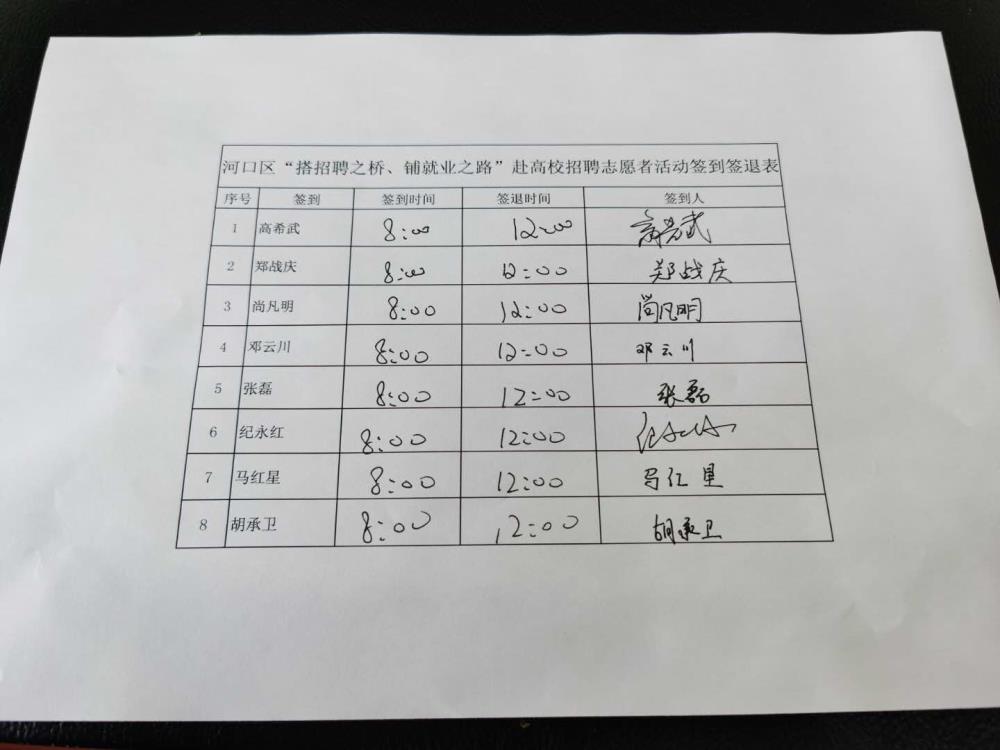 河口区“搭招聘之桥、铺就业之路”赴高校招聘志愿者活动签到签退表
序号 签到 签到时间 签退时间 签到人
1 高希武 8:00 12:00 高希武
2 郑战庆 8:00 12:00 郑战庆
3 尚凡明 8:00 12:00 尚凡明
4 邓云川 8:00 12:00 邓云川
5 张磊 8:00 12:00 张磊
6 纪永红 8:00 12:00
7 马红星 8:00 12:00 马红星
8 胡承卫 8:00 12:00 胡承卫